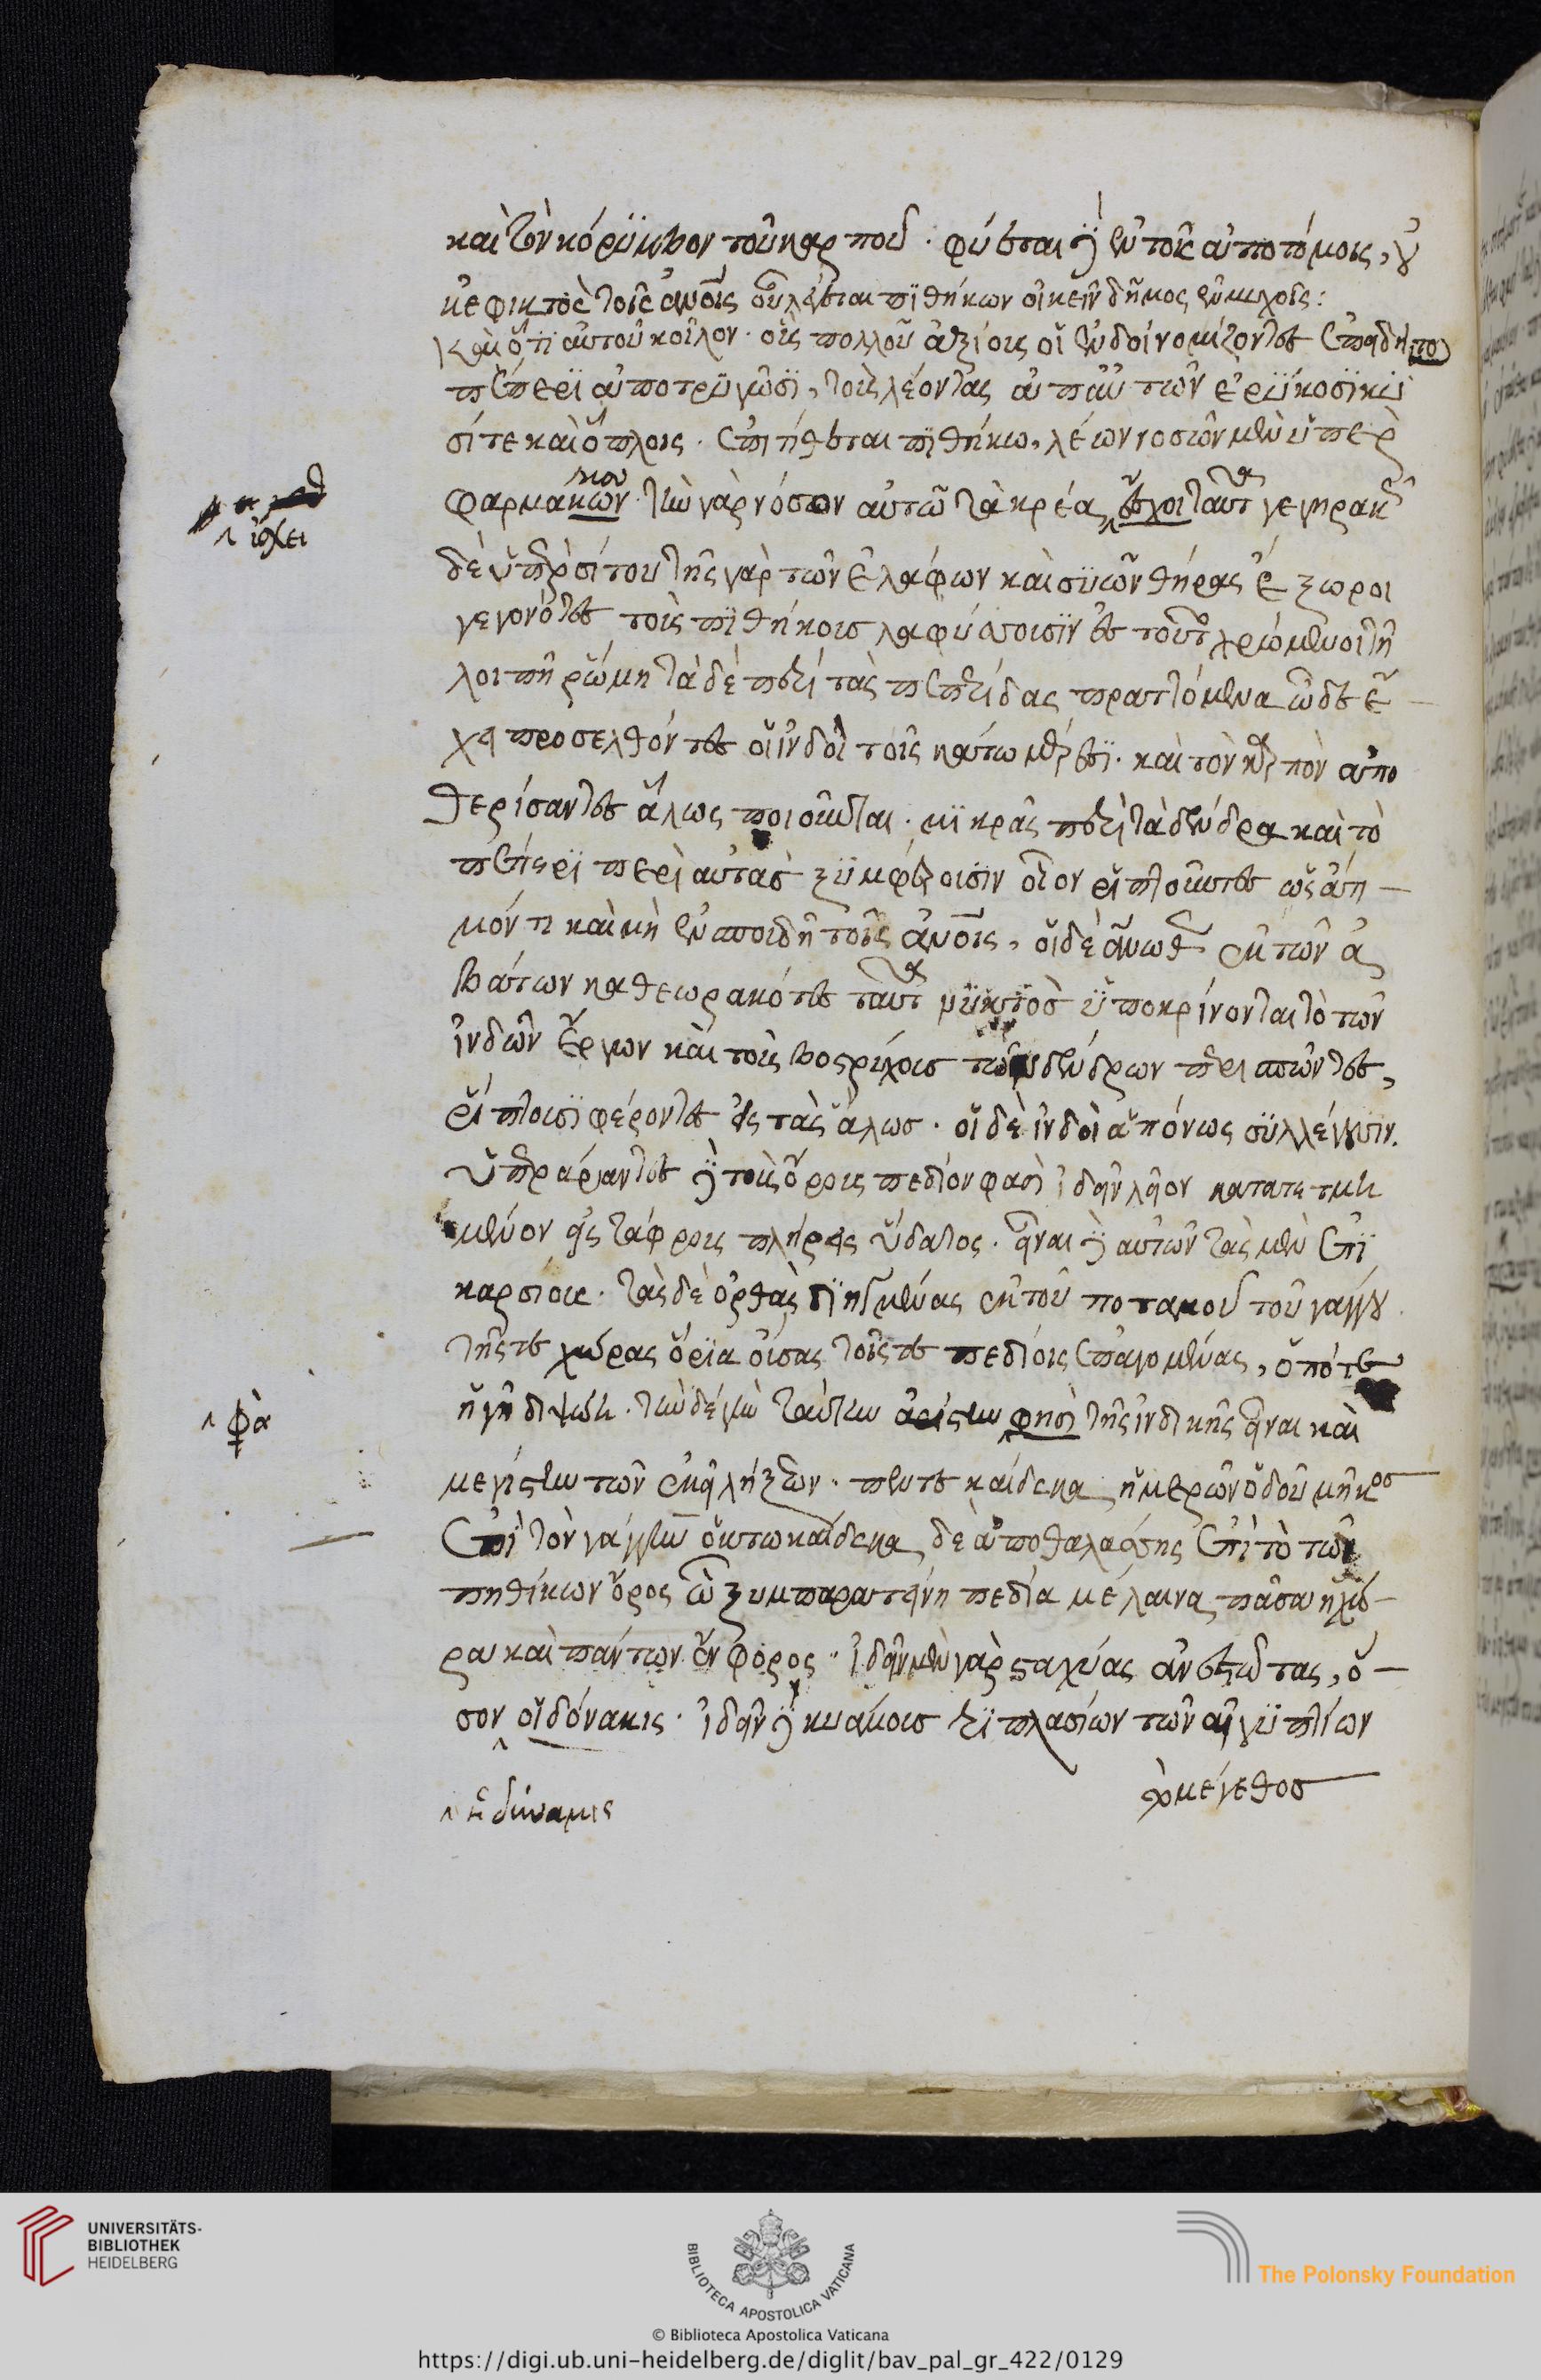 καὶ τὸν κόρυμβον τοῦ καρποῦ · φύεται δὲ ἐν τοῖς ἀποτόμοις, οὐ
κ ἐφικτὸς τοῖς ἀνοις οὗ λέγεται πιθήκων οἰκεῖν δῆμος ἐν μυχοῖς :
καὶ ὅτι αὐτοῦ κοῖλον · οὓς πολλοῦ ἀξίους οἱ ἰνδοὶ νομίζοντες ἐπειδὴ το
πέπερι ἀποτρυγῶσι, τοὺς λέοντας ἀπ αὐτῶν ἐρύκοσι κυ
σί τε καὶ ὅπλοις · ἐπιτίθεται πιθήκω, λέων νοσῶν μὲν ὑπὲρ
φαρμακῶν κου · τὴν γὰρ νόσον αὐτῶ τὰ κρέα ^ ταῦτα γεγηρακ
^ ἴσχει
δὲ ὑπὲρ σίτου τῆς γὰρ τῶν ἐλάφων καὶ συῶν θήρας ἔξωροι
γεγονότες τοὺς πιθήκους λαφύσσουσιν ἐς τοῦτο χρώμενοι τῆ
λοιπῆ ῥώμη τὰ δὲ περὶ τὰς πεπερίδας πραττόμενα ὧδε ἔ
χει προσελθόντες οἱ ἰνδοὶ τοῖς κάτω μέρεσι · καὶ τὸν καρπὸν ἀπο
θερίσαντες ἅλως ποιοῦνται · μικρὰς περὶ τὰ δένδρα καὶ τὸ
πέπερι περὶ αὐτὰς ξυμφέρουσιν οἷον ῥιπτοῦντες ὡς ἀτι
μόν τι καὶ μὴ ἐν σπουδῆ τοῖς ἀνοις, οἱ δὲ ἄνωθεν ἐκ τῶν ἀ
βάτων καθεωρακότες ταῦτα νυκτὸς ὑποκρίνονται τὸ τῶν
ἰνδῶν ἔργον καὶ τοὺς βοστρύχους τῶν δένδρων περισπῶντες,
ῥίπτουσι φέροντες ἐς τὰς ἅλως · οἱ δὲ ἰνδοὶ ἀπόνως συλλέγουσιν.
ὑπεράραντες δὲ τοὺς ὄρους πεδίον φασὶ ἰδεῖν λεῖον κατατετμη
μένον εἰς τάφρους πλήρεις ὕδατος · εἶναι δὲ αὐτῶν τὰς μὲν ἐπι
καρσίους · τὰς δὲ ὀρθὰς διηγμένας ἐκ τοῦ ποταμοῦ τοῦ γάγγου
τῆς τε χώρας ὅρια οὔσας τοῖς τε πεδίοις ἐπαγομένας, ὁπότε
ἡ γῆ διψώη · τὴν δὲ γῆν ταύτην ἀρίστην ^ φησὶ τῆς ἰνδικῆς εἶναι καὶ
^ φὰ
μεγίστην τῶν ἐκεῖ λήξεων · πεντεκαίδεκα ἡμερῶν ὁδοῦ μῆκος
ἐπὶ τὸν γάγγην ὀκτωκαίδεκα δὲ ἀπὸ θαλάσσης ἐπὶ τὸ τῶν
πηθίκων ὄρος ὧ ξυμπαρατείνη πεδία μέλαινα πᾶσα ἡ χώ
ρα καὶ πάντων εὔφορος · ἰδεῖν μὲν γὰρ σταχύας ἀνεστῶτας, ὅ
σον ^ οἱ δόνακις · ἰδεῖν δὲ κυάμους τριπλασίων τῶν αἰγυπτίων
τὸ μέγεθος
^ ἡ δύναμις
UNIVERSITÄTS-
BIBLIOTHEK
HEIDELBERG
BIBLIOTECA APOSTOLICA VATICANA
The Polonsky Foundation
© Biblioteca Apostolica Vaticana
https://digi.ub.uni-heidelberg.de/diglit/bav_pal_gr_422/0129